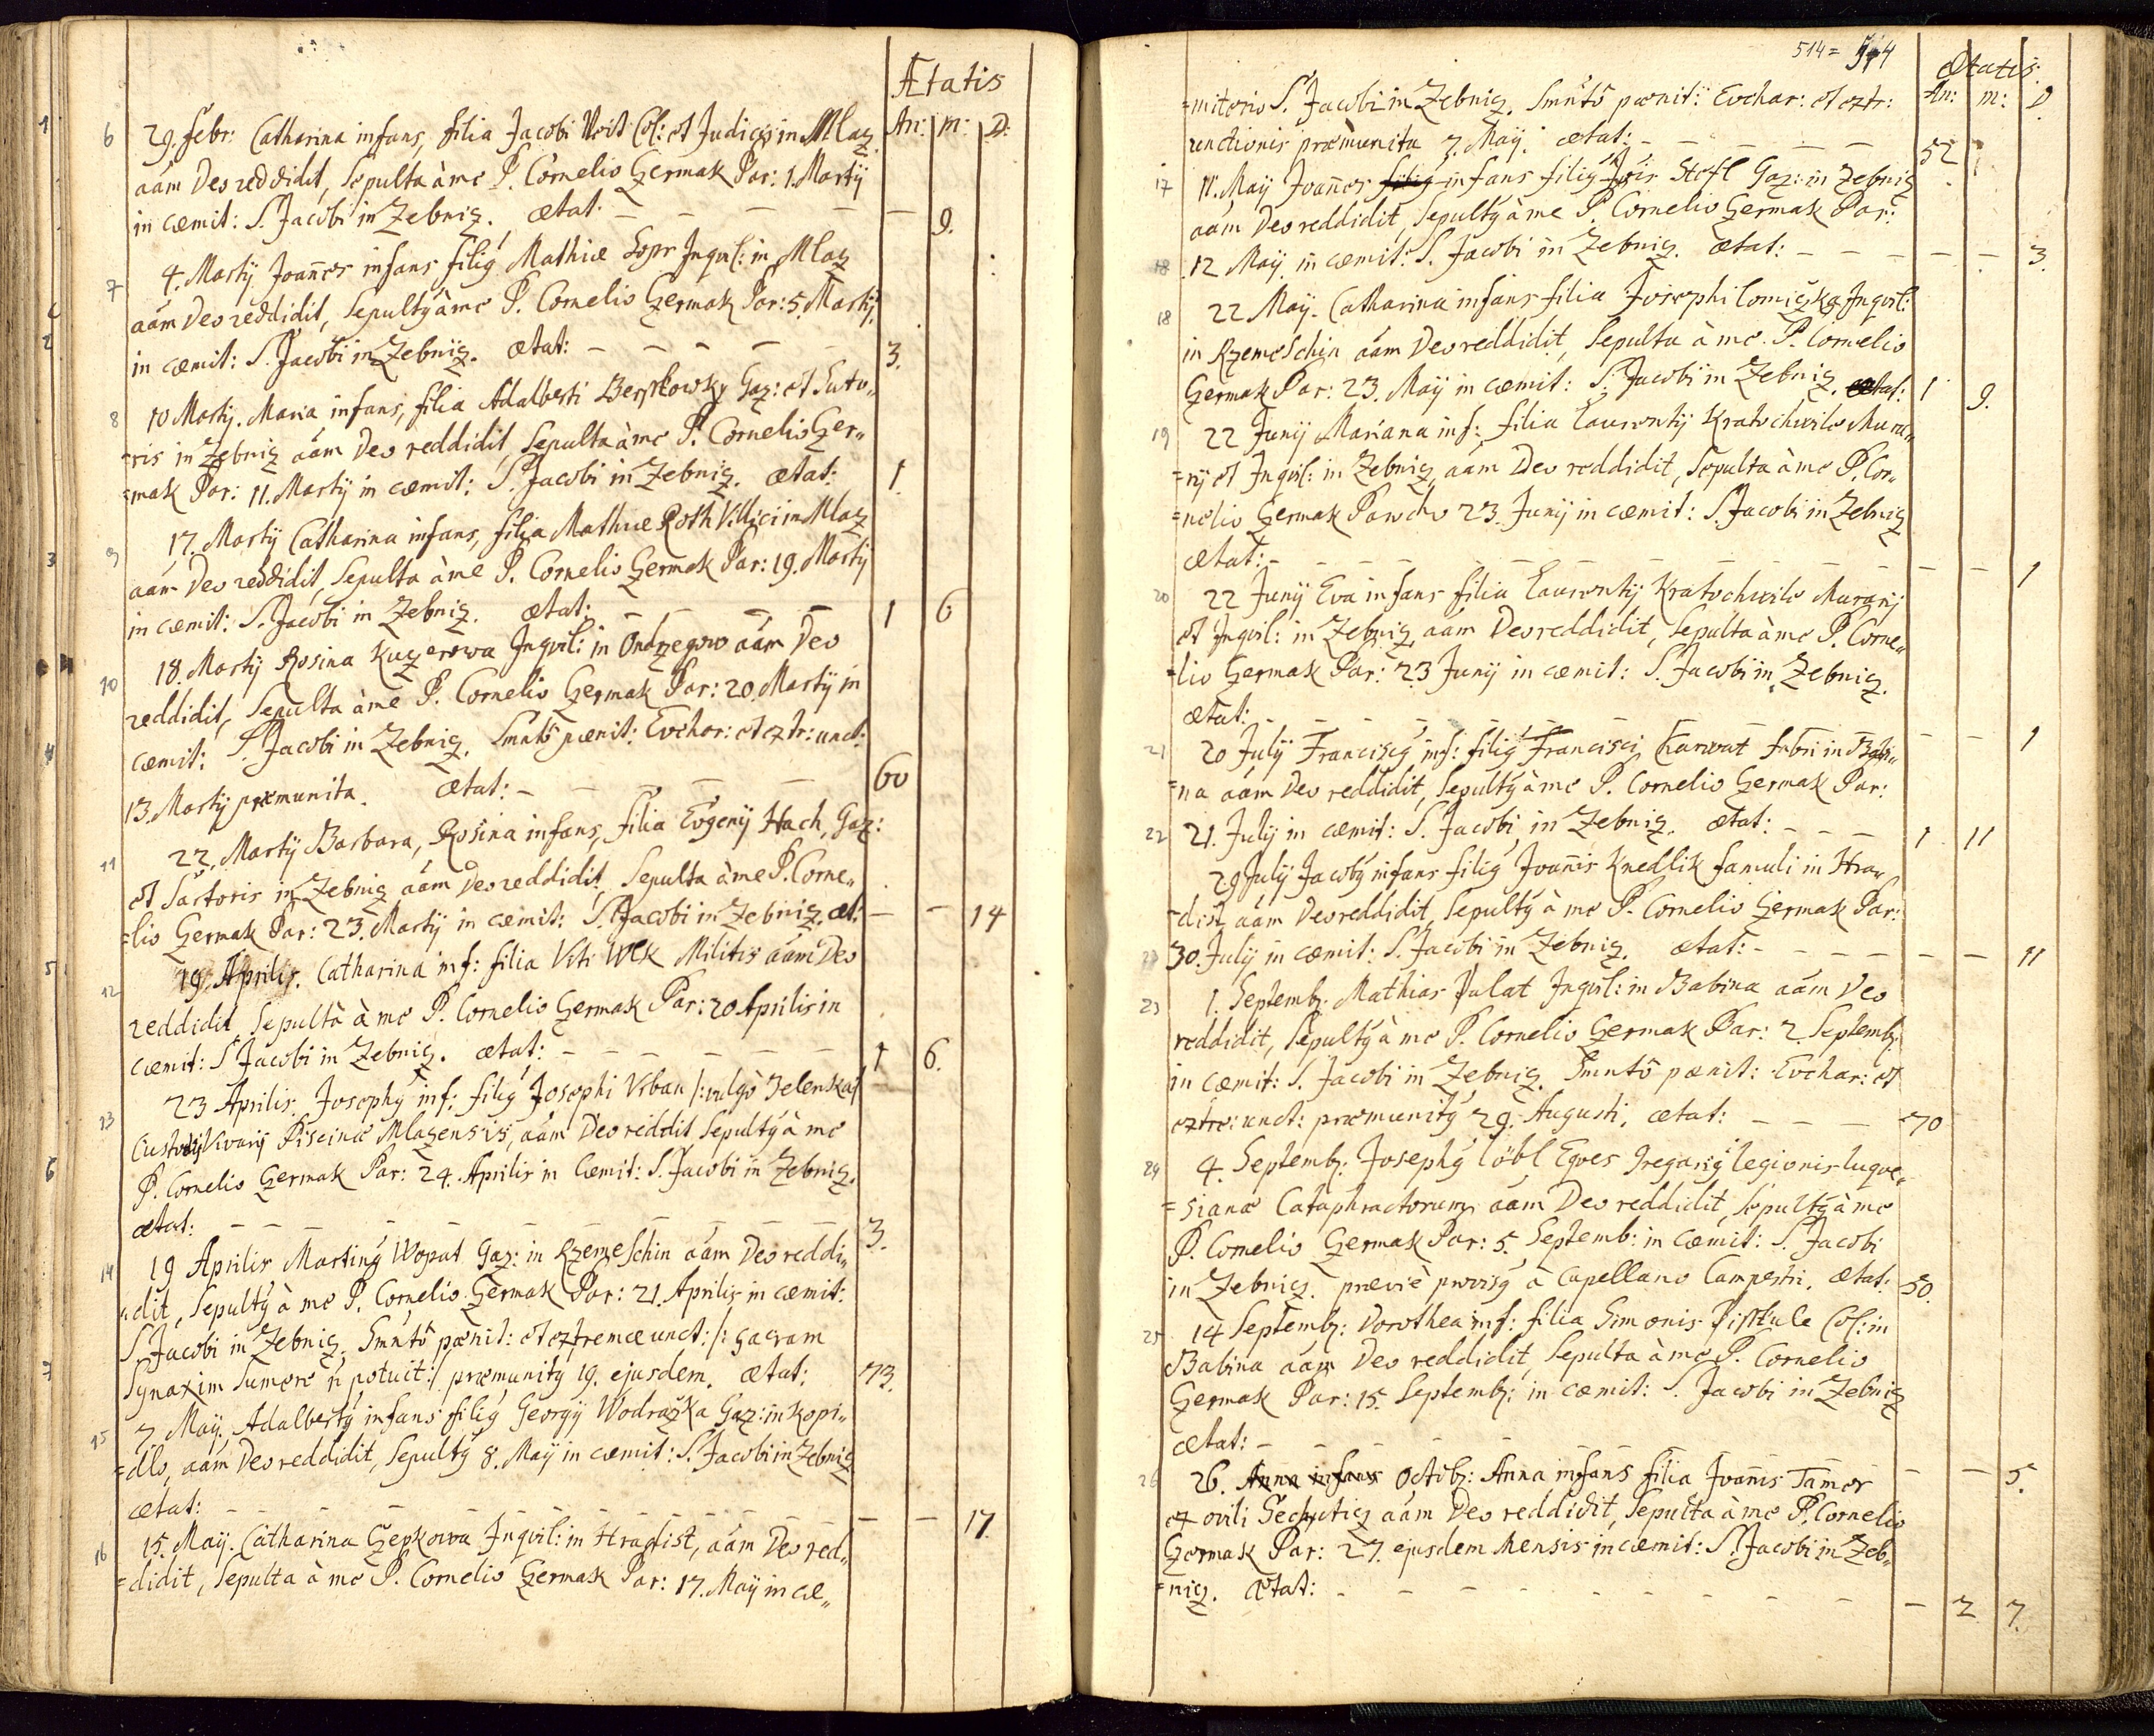 Ætatis
An: m: D:
6 29. febr: Catharina infans, filia Jacobi Veit Col: et Judicis in Mlaz
aãm Deo reddidit, Sepulta à me P. Cornelio Germak Par: 1. Martÿ
in cæmit: S. Jacobi in Zebniz. ætat: — — — — — 9.
7 4. Martÿ Joañes infans filiꝰ Mathiæ Inqvil: in Mlaz
aãm Deo reddidit, Sepultꝰ à me P. Cornelio Germak Par: 5. Martÿ
in cæmit: S. Jacobi in Zebniz. ætat: — — — — — 3.
8 10 Martÿ. Maria infans, filia Adalberti Gaz: et Suto„
=ris in Zebniz aãm Deo reddidit, Sepulta à me P. Cornelio Ger„
=mak Par: 11. Martÿ in cæmit: S. Jacobi in Zebniz. ætat: 1.
9 17. Martÿ Catharina infans, filia Mathiæ Roth Villici in Mlaz
aãm Deo reddidit, Sepulta à me P. Cornelio Germak Par: 19. Martÿ
in cæmit: S. Jacobi in Zebniz. ætat: — — — — 1 6
10 18. Martÿ Rosina Kuzerowa Inqvil: in Ondrzegow aãm Deo
reddidit, Sepulta à me P. Cornelio Germak Par: 20. Martÿ in
cæmit: S. Jacobi in Zebniz. Smntõ pænit: Evchar: et extr: unct:
13. Martÿ præmunita. ætat: — — — — — 60
11 22. Martÿ Barbara, Rosina infans, filia Evgenÿ Hach, Gaz:
et Sartoris in Zebniz aãm Deo reddidit, Sepulta à me P. Corne„
=lio Germak Par: 23. Martÿ in cæmit: S. Jacobi in Zebniz. æt: — — 14
12 19. Aprilis. Catharina inf: filia Viti Wlk Militis aãm Deo
reddidit, Sepulta à me P. Cornelio Germak Par: 20 Aprilis in
cæmit: S. Jacobi in Zebniz. ætat: — — — — — 1 6.
13 23 Aprilis. Josephꝰ inf: filiꝰ Josephi Vrban /: vulgò Zelenka :/
Custodis Vivarÿ Piscinæ Mlazensis, aãm Deo reddit Sepultꝰ à me
P. Cornelio Germak Par: 24. Aprilis in Cæmit: S. Jacobi in Zebniz.
ætat: — — — — — — — — 3.
14 19 Aprilis Martinꝰ Wopat Gaz: in Rzemeschin aãm Deo reddi„
„dit, Sepultꝰ à me P. Cornelio Germak Par: 21. Aprilis in cæmit:
S. Jacobi in Zebniz. Smntõ pænit: et extremæ unct: /: sacram
Synaxim sumere ñ potuit :/ præmunitꝰ 19. ejusdem. ætat: 73.
15 7 Maÿ. Adalbertꝰ infans filiꝰ Georgÿ Wodrazka Gaz: in Kopi„
=dlo, aãm Deo reddidit, Sepultꝰ 8. Maÿ in cæmit: S. Jacobi in Zebniz
ætat: — — — — — — — — — 17
16 15. Maÿ. Catharina Inqvil: in Hradist, aãm Deo red„
=didit, Sepulta à me P. Cornelio Germak Par: 17. Maÿ in cæ„
514 =
Ætatis
An: m: D
=miterio S. Jacobi in Zebniz. Smntõ pænit: Evchar: et extr:
unctionis præmunita 7. Maÿ. ætat: — — — — 52
17 11. Maÿ Joañes infans filiꝰ Stefl Gaz: in Zebniz
aãm Deo reddidit, Sepultꝰ à me P. Cornelio Germak Par:
18 12 Maÿ. in cæmit: S. Jacobi in Zebniz. ætat: — — — — — 3.
18 22 Maÿ. Catharina infans filia Josephi Lomiczka Inqvil:
in Rzemeschin aãm Deo reddidit, Sepulta à me P. Cornelio
Germak Par: 23. Maÿ in cæmit: S. Jacobi in Zebniz. ætat: 1 9.
19 22 Junÿ Mariana inf: filia Laurentÿ Kratochwile Mura„
=rÿ et Inqvil: in Zebniz, aãm Deo reddidit, Sepulta à me P. Cor„
=nelio Germak Parocho 23. Junÿ in cæmit: S. Jacobi in Zebniz
ætat: — — — — — — — — — 1
20 22 Junÿ Eva infans filia Laurentÿ Kratochwile Murarÿ
et Inqvil: in Zebniz, aãm Deo reddidit, Sepulta à me P. Corne„
=lio Germak Par: 23 Junÿ in cæmit: S. Jacobi in Zebniz.
ætat: — — — — — — — — — 1
21 20 Julÿ Franciscꝰ inf: filiꝰ Francisci Karwat fabri in Babi„
=na aãm Deo reddidit, Sepultꝰ à me P. Cornelio Germak Par:
22 21. Julÿ in cæmit: S. Jacobi in Zebniz. ætat: — — — 1 11
29 Julÿ Jacobꝰ infans filiꝰ Joañis Knedlik famuli in Hra„
=dist, aãm Deo reddidit, Sepultꝰ à me P. Cornelio Germak Par:
23 30. Julÿ in cæmit: S. Jacobi in Zebniz. ætat: — — — — — — 11
23 1. Septemb: Mathias Pulat Inqvil: in Babina aãm Deo
reddidit, Sepultꝰ à me P. Cornelio Germak Par: 2. Septemb:
in cæmit: S. Jacobi in Zebniz. Smntõ pænit: Evchar: et
extre: unct: præmunitꝰ 29. Augusti, ætat: — — — 70
24 4. Septemb: Josephꝰ Löbl Eqves Gregariꝰ legionis luqve„
=sianæ Cataphractorum aãm Deo reddidit, Sepultꝰ à me
P. Cornelio Germak Par: 5. Septemb: in cæmit: S. Jacobi
in Zebniz. prævie provisꝰ à Capellano Campestri. ætat: 50.
25 14 Septemb: Dorothea inf: filia Simonis Pisstule Col: in
Babina aãm Deo reddidit, Sepulta à me P. Cornelio
Germak Par: 15. Septemb: in cæmit: S. Jacobi in Zebniz
ætat: — — — — — — — — — 5.
26 26. Anna infans Octob: Anna infans filia Joañis Tamer
ex ovili Sechutiz aãm Deo reddidit, Sepulta à me P. Cornelio
Germak Par: 27. ejusdem Mensis in cæmit: S. Jacobi in Zeb„
=niz. ætat: — — — — — — — — 2 7.